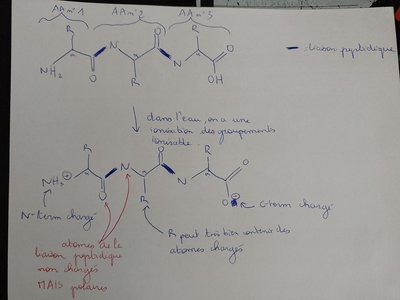 AA n°1 AA n°2 AA n°3
R O R
N O
NH2 O R N OH
liaison peptidique
dans l'eau, on a une
ionisation des groupements
ionisable.
R O R
NH3 ⊕ N O
O R N O⊖
N-term chargé
C-term chargé
atomes de la
liaison peptidique
non chargés
MAIS polaires
R peut très bien contenir des
atomes chargés